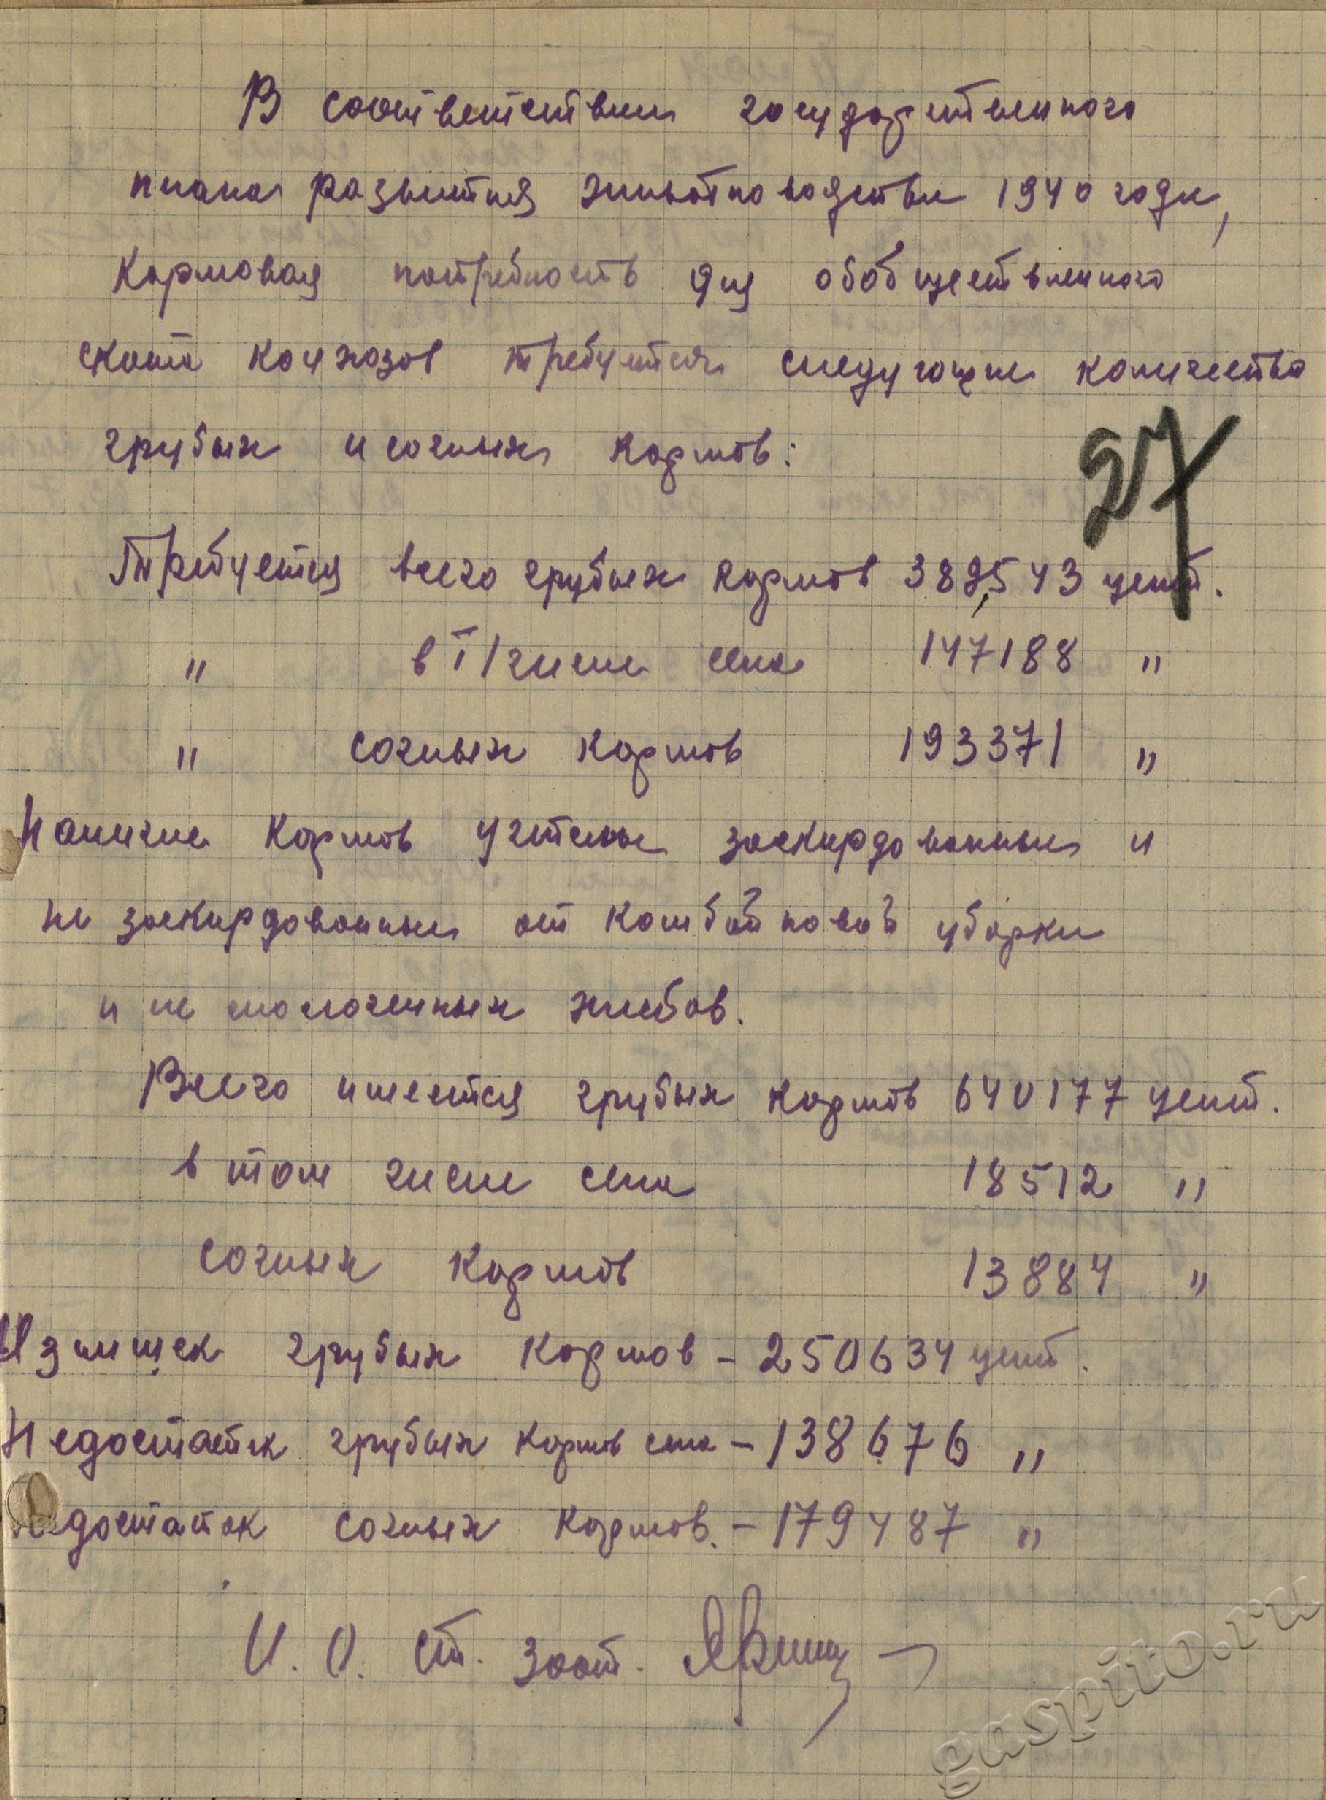 В соответствии государственного
плана развития животноводства 1940 года,
Кормовая потребность для обобществленного
скота колхозов требуется следующие количества
грубых и сочных кормов:
27
Требуется всего грубых кормов 389543 цент.
" в т/числе сена 147188 "
" сочных кормов 193371 "
Наличие кормов учтены заскирдованные и
не заскирдованные от комбайновой уборки
и не молоченных хлебов.
Всего имеется грубых кормов 640177 цент.
в том числе сена 18512 "
сочных кормов 13884 "
Излишек грубых кормов - 250634 цент.
Недостаток грубых кормов сена - 138676 "
Недостаток сочных кормов. - 179487 "
И. О. ст. зоот.
gaspito.ru